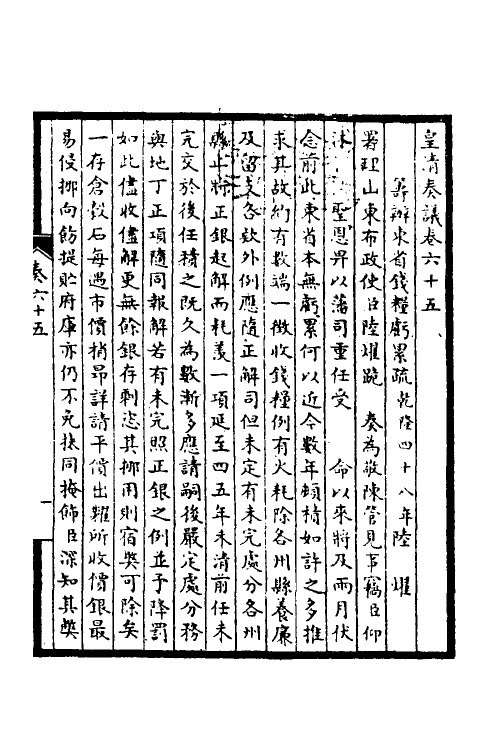 皇清奏議卷六十五
籌辦東省錢糧虧累疏乾隆四十八年陸燿
署理山東布政使臣陸燿跪 奏為敬陳管見事竊臣仰
沐 聖恩畀以藩司重任受 命以來將及兩月伏
念前此東省本無虧累何以近今數年頓積如許之多推
求其故約有數端一徵收錢糧例有火耗除各州縣養廉
及留支各款外例應隨正解司但未定有未完處分各州
縣止將正銀起解而耗羨一項延至四五年未清前任未
完交於後任積之既久為數漸多應請嗣後嚴定處分務
與地丁正項隨同報解若有未完照正銀之例並予降罰
如此儘收儘解更無餘銀存剩恣其挪用則宿獘可除矣
一存倉穀石每遇市價稍昂詳請平價出糶所收價銀最
易侵挪向飭提貯府庫亦仍不免扶同掩飾臣深知其獘
奏六十五
一